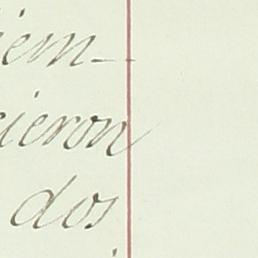 iem-
cieron
dos